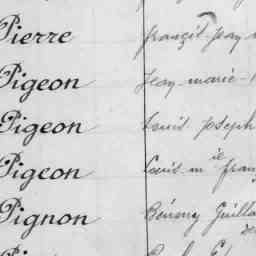 Pierre françois jean
Pigeon Jean marie
Pigeon Louis joseph
Pigeon Louis m ie
Pignon Guilla